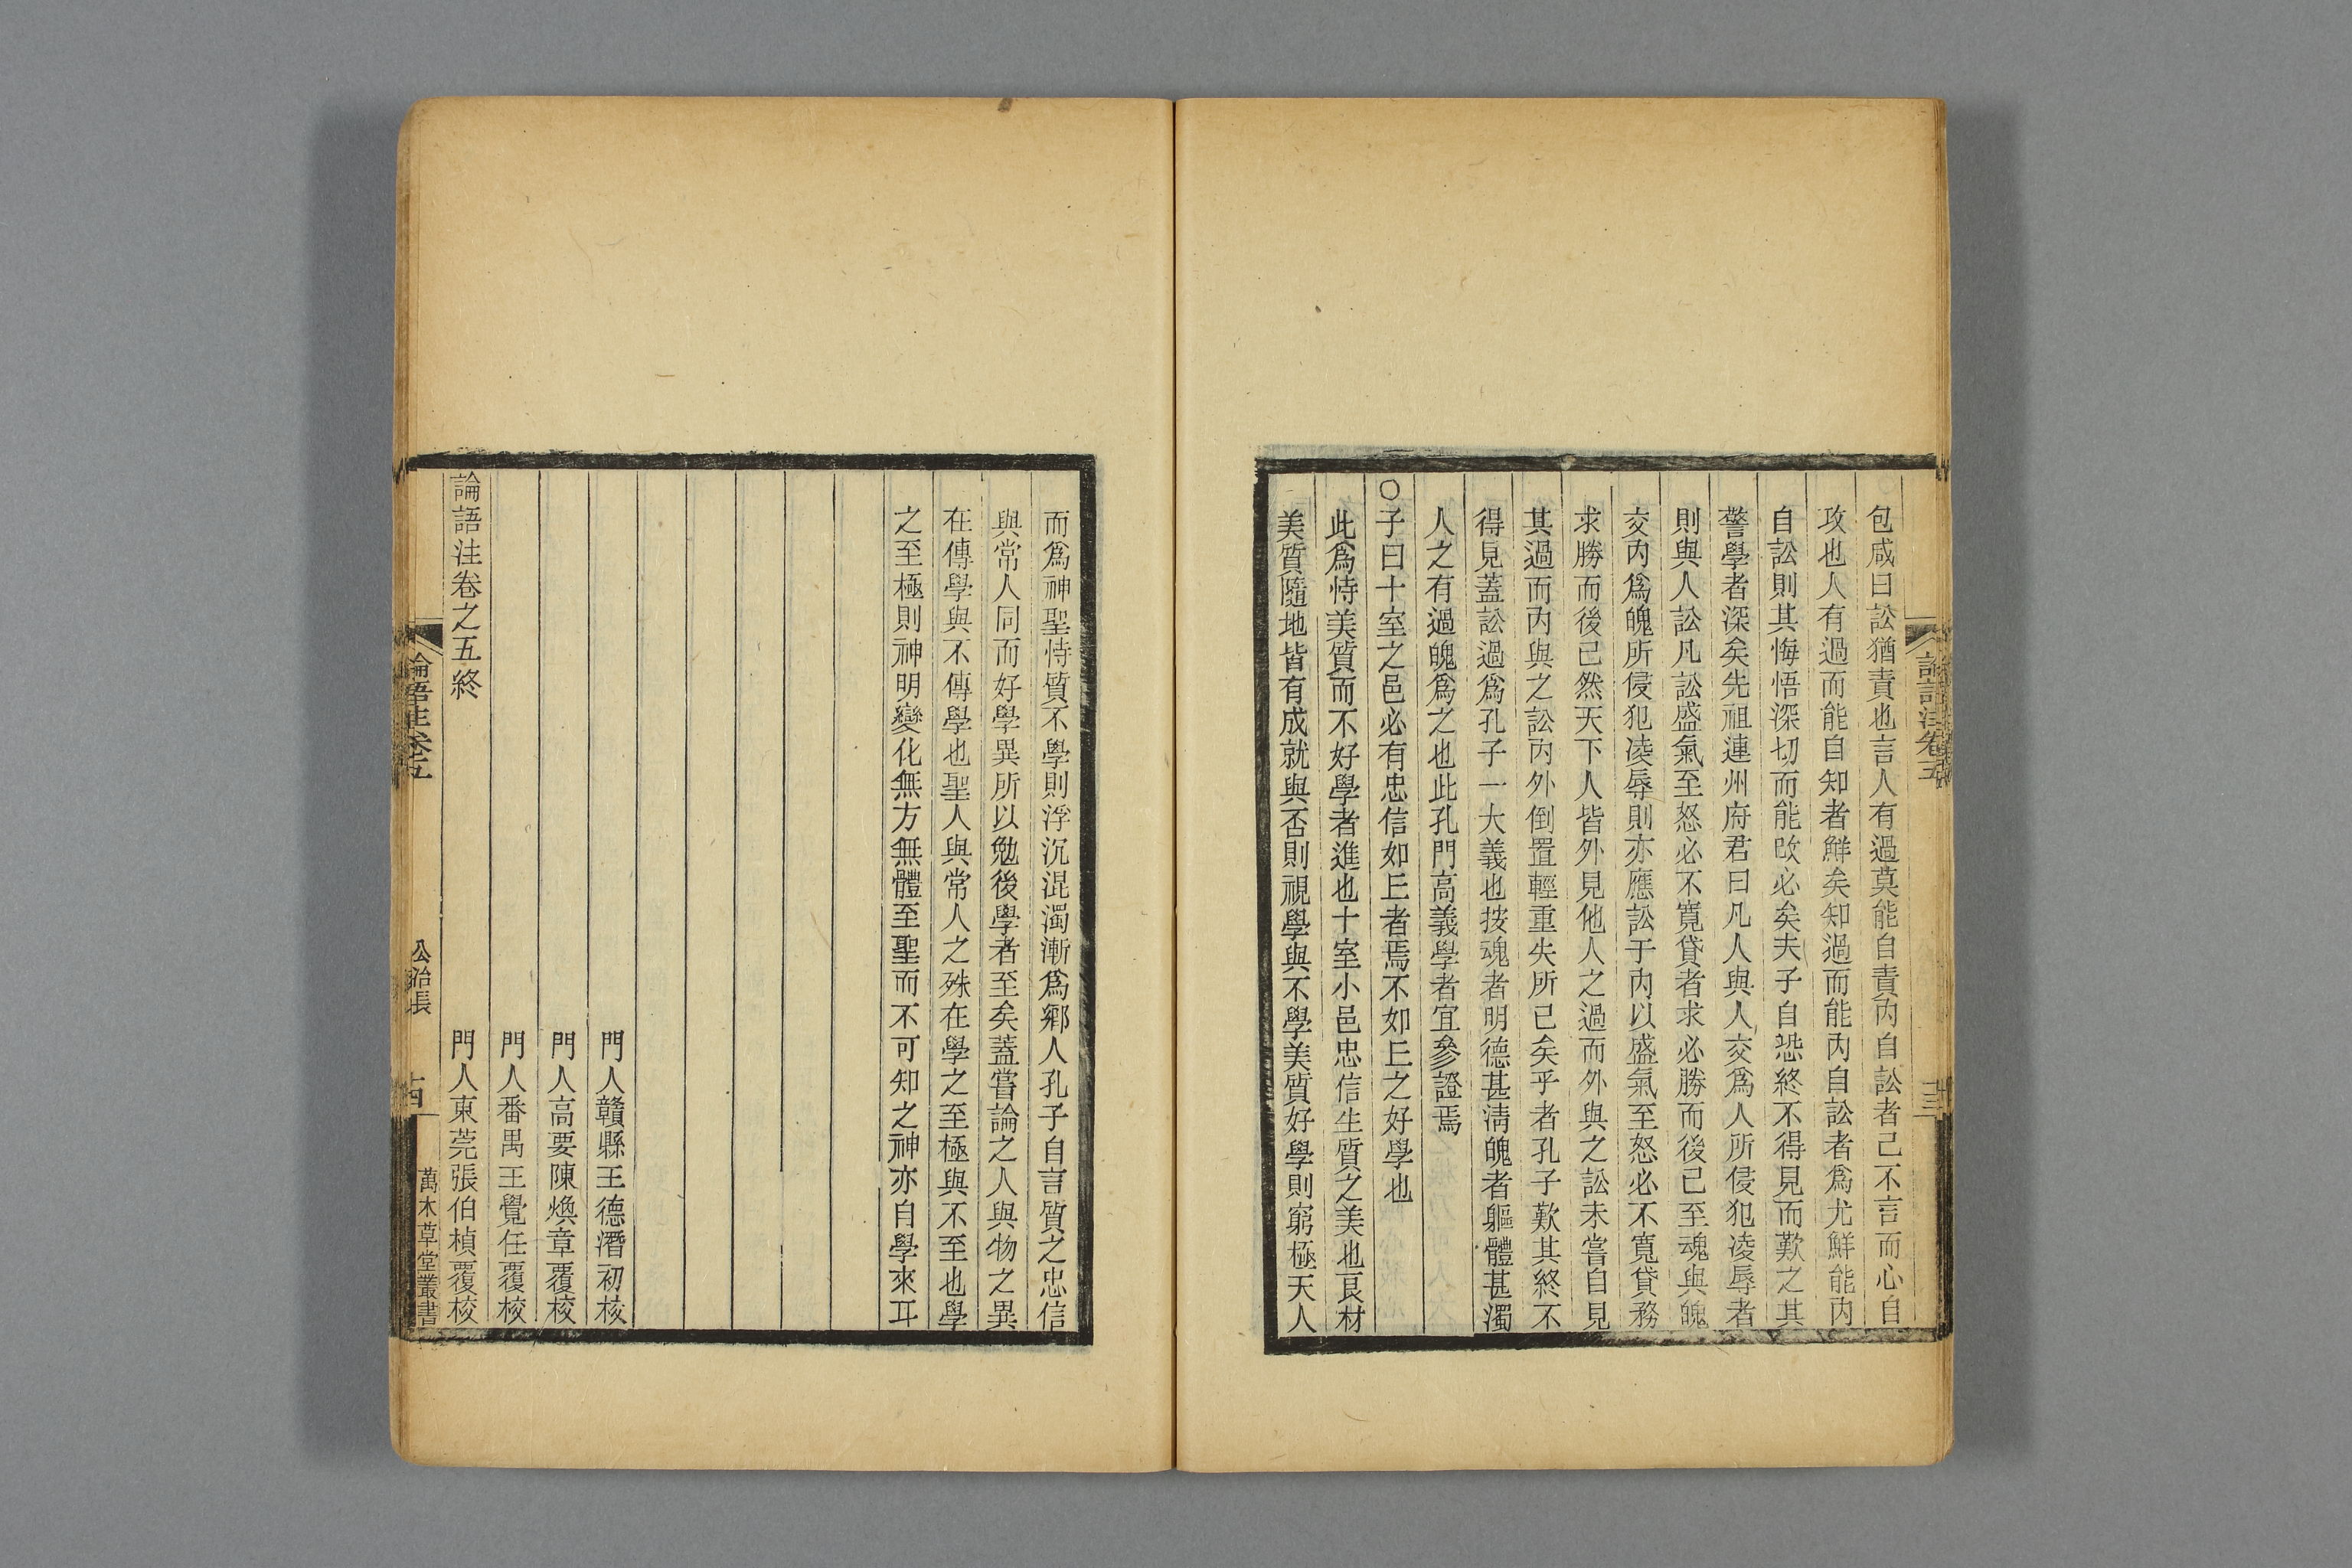 論語注卷五
十三
包咸曰訟猶責也言人有過莫能自責內自訟者己不言而心自
攻也人有過而能自知者鮮矣知過而能內自訟者爲尤鮮能內
自訟則其悔悟深切而能改必矣夫子自恐終不得見而歎之其
警學者深矣先祖連州府君曰凡人與人交爲人所侵犯凌辱者
則與人訟凡訟盛氣至怒必不寬貸者求必勝而後已至魂與魄
交內爲魄所侵犯凌辱則亦應訟于內以盛氣至怒必不寬貸務
求勝而後已然天下人皆外見他人之過而外與之訟未嘗自見
其過而內與之訟內外倒置輕重失所已矣乎者孔子歎其終不
得見蓋訟過爲孔子一大義也按魂者明德甚淸魄者軀體甚濁
人之有過魄爲之也此孔門高義學者宜參證焉
○子曰十室之邑必有忠信如丘者焉不如丘之好學也
此爲恃美質而不好學者進也十室小邑忠信生質之美也良材
美質隨地皆有成就與否則視學與不學美質好學則窮極天人
而爲神聖恃質不學則浮沉混濁漸爲鄉人孔子自言質之忠信
與常人同而好學異所以勉後學者至矣蓋嘗論之人與物之異
在傳學與不傳學也聖人與常人之殊在學之至極與不至也學
之至極則神明變化無方無體至聖而不可知之神亦自學來耳
門人贛縣王德潛初校
門人高要陳煥章覆校
門人番禺王覺任覆校
論語注卷之五終
門人東莞張伯楨覆校
論語注卷五
公冶長
十四
萬木草堂叢書